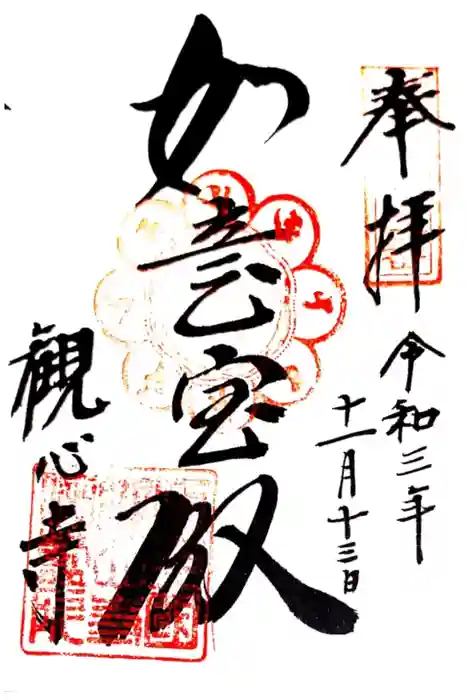 奉拝
令和三年
十一月十三日
如意宝殿
観心寺